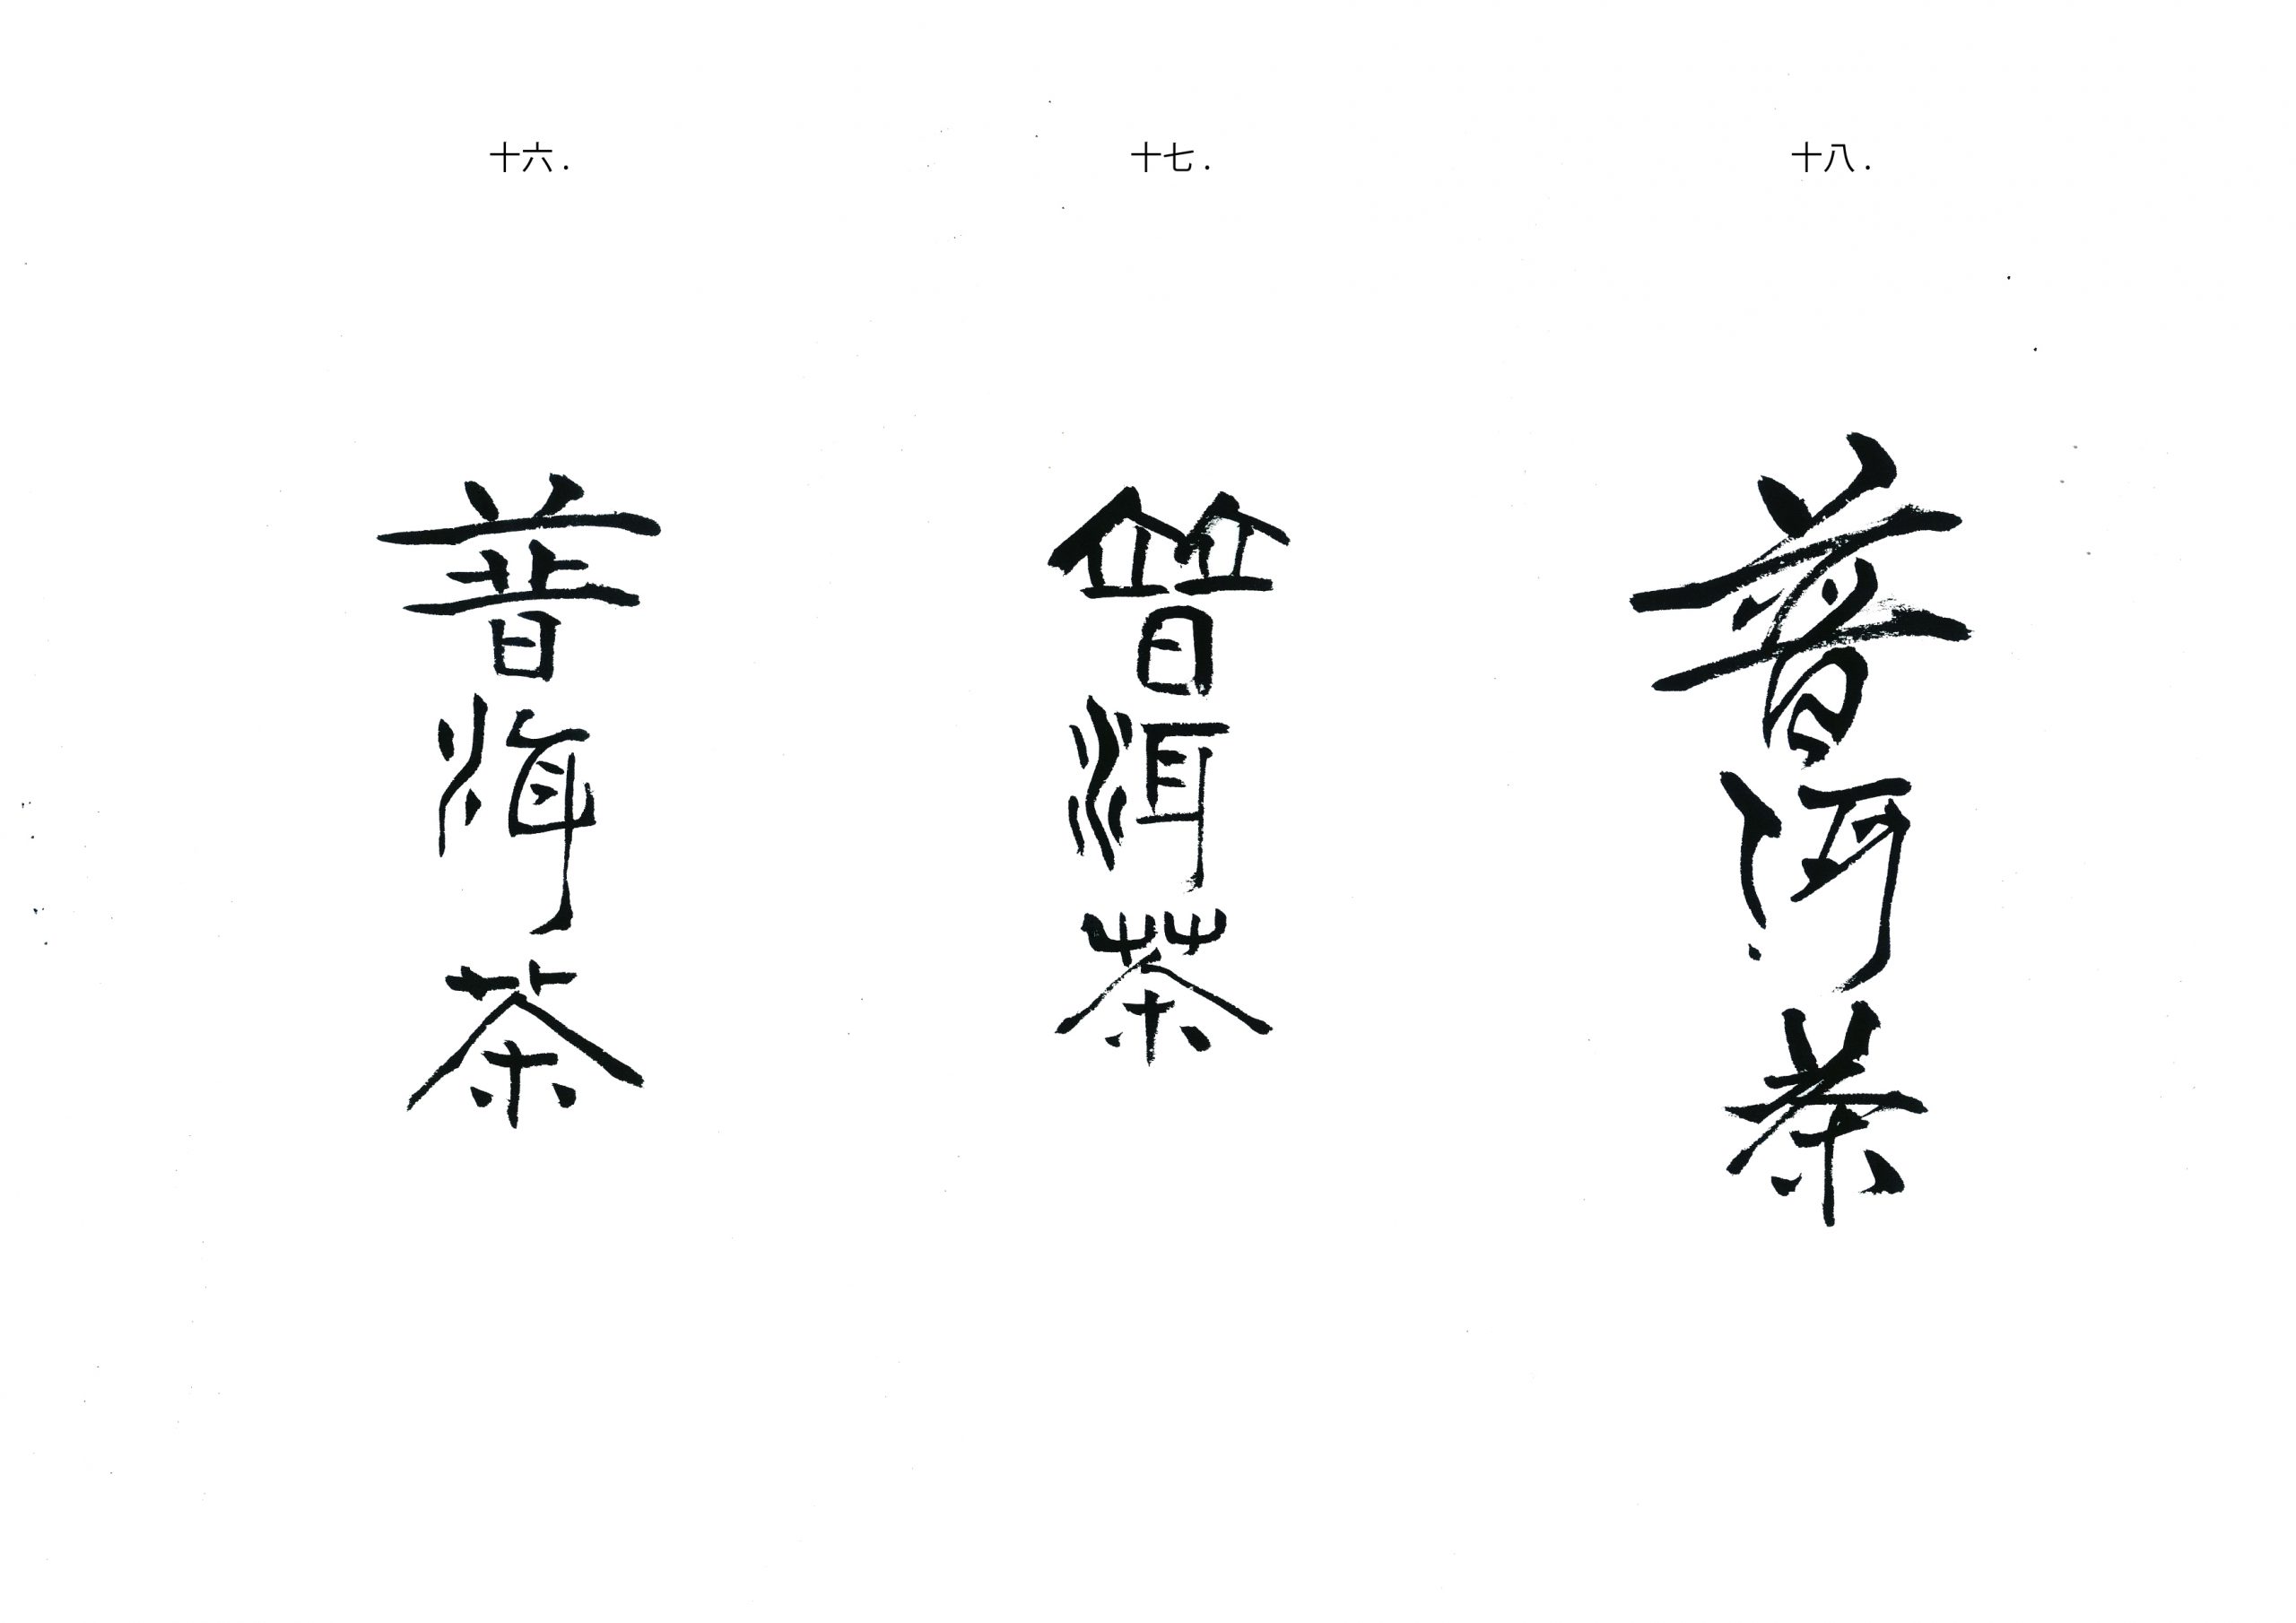 十六.
普洱茶
十七.
普洱茶
十八.
普洱茶